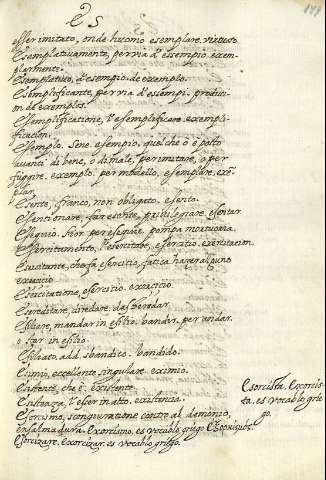 E S
esser imitato, onde huomo esemplare. virtuso.
Esemplatiuamente, per via d'essempio. exem-
plarmente.
Esemplatiuo, d'esempio. de exemplo.
Esemplificante, per via d'essempi.
de exemplos.
Esemplificatione, l'esemplificare. exempli-
ficacion.
Esemplo. Sene esempio, quel che ò è posto
auanti di bene, o di male, per imitare, o per
fuggire. exemplo. per modello, esemplare. exē-
plar.
Esente, franco, non obligato. esento.
Esentionare, far esente, priuilegiare. esentar.
Essequio. fior per esequie. pompa mortuoria.
Esserritamento, l'esercitare, essercitio. exercitacion.
Esercitante, che fa esercitio, fatica
exercicio
Esercitatione, esercitio. exercicio.
Esereditare, diredare. desheredar.
Esiliare, mandar in esilio. bandir. per andar.
o far in esilio.
Esiliato, add. sbandito. bandido.
Esimio, eccellente, singulare. eximio.
Esistente, che è. existente.
Esistenza, l'esser in atto. existencia.
Esorcismo, scongiuratione contro al demonio,
ensalmadura. Exorcismo, es vocablo griego
Esorcizare. Exorcizar, es vocablo griego.
Esorcista. Exorcis-
ta, es vocablo grie-
go.